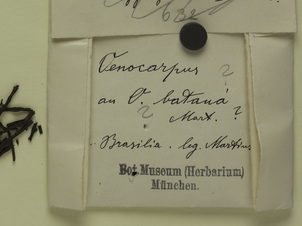 Oenocarpus ?
an O. batauá ?
? Mart.
Brasilia. leg. Martius
Bot. Museum (Herbarium)
München.